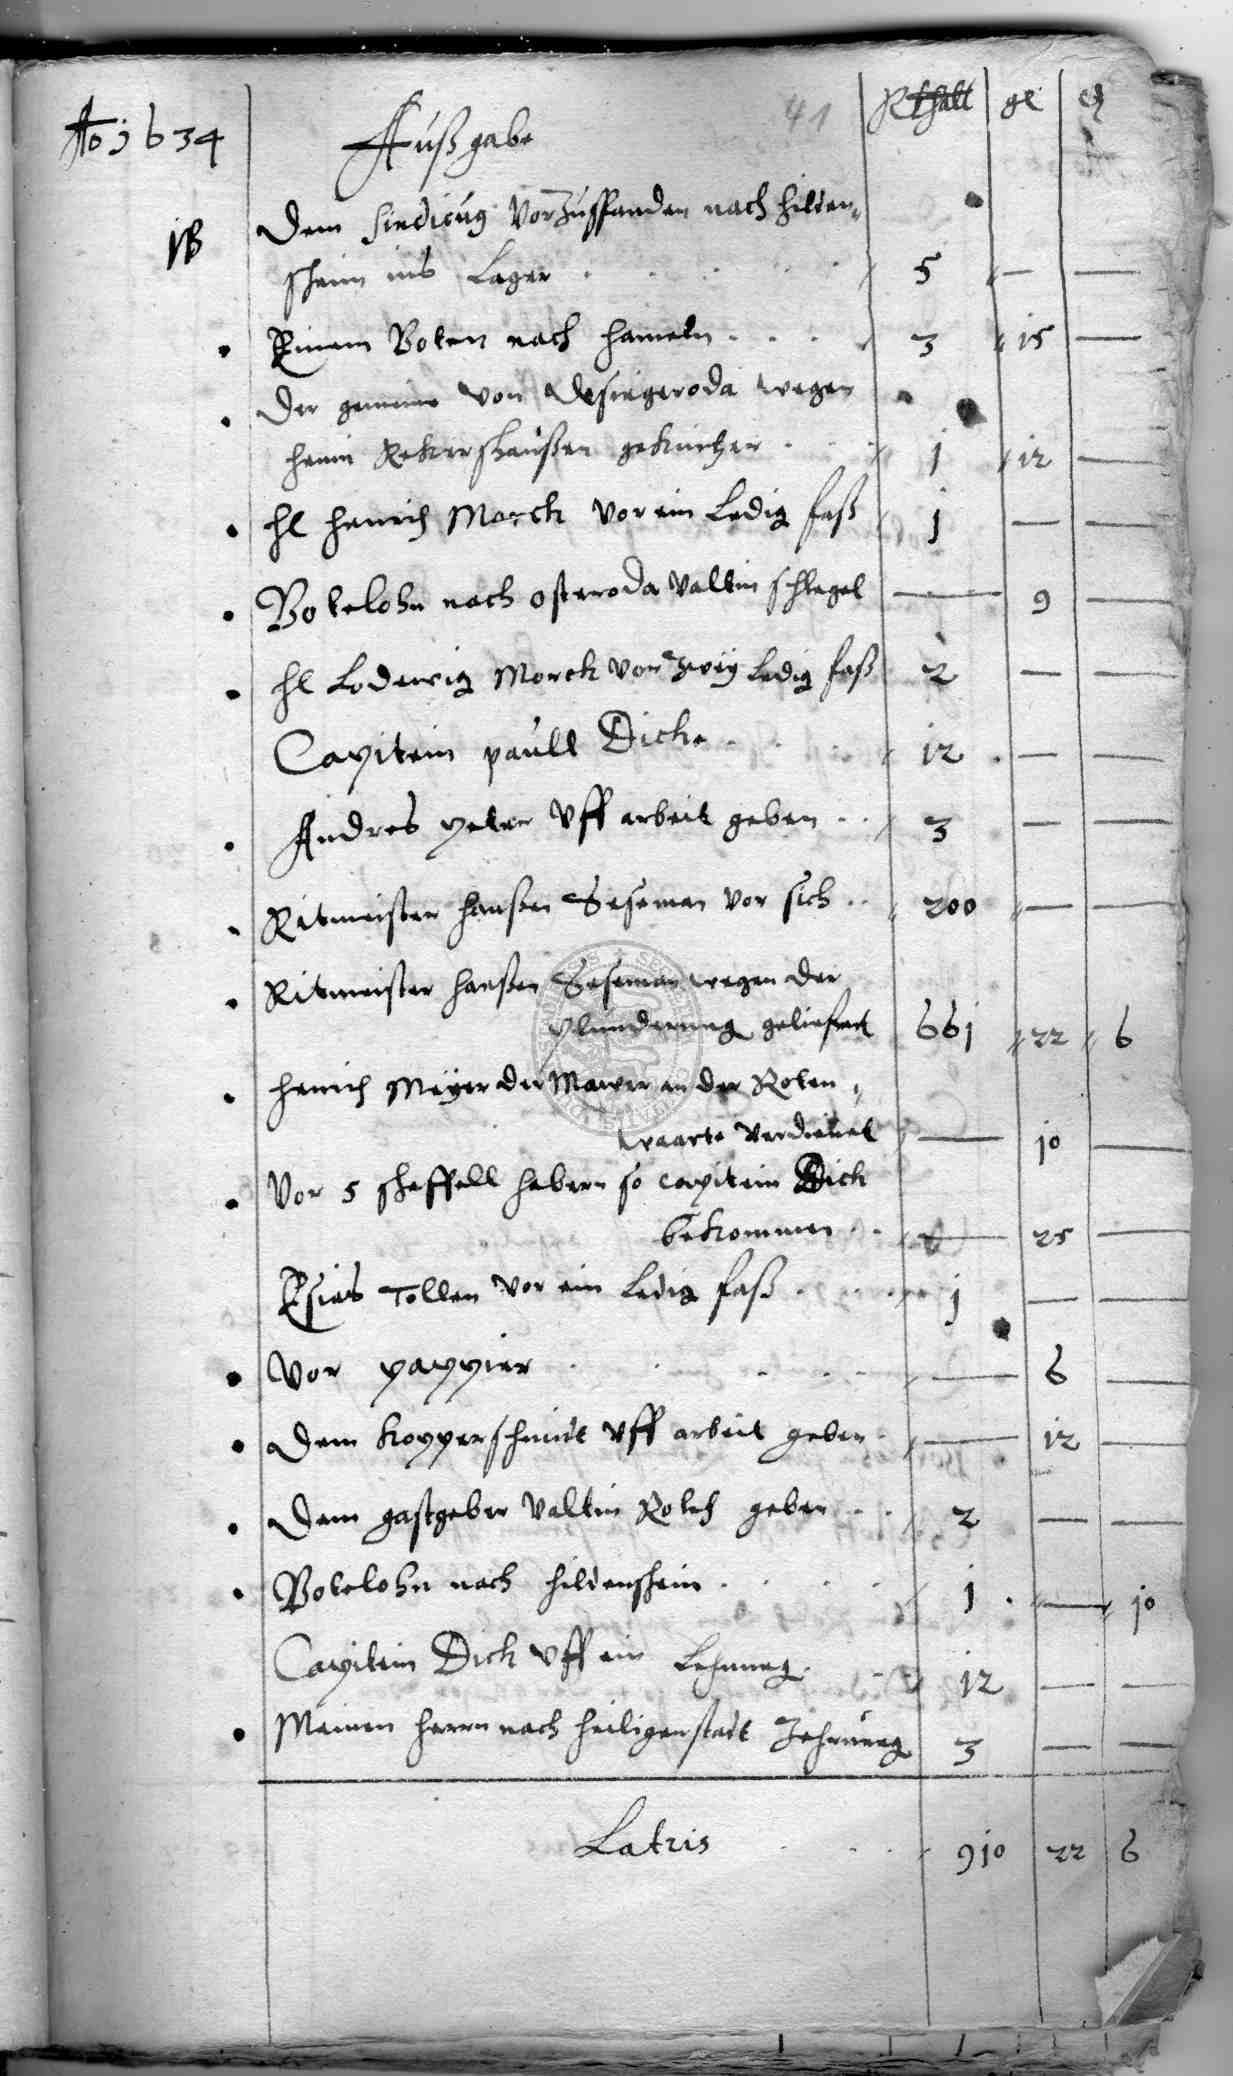 41
Ao 1634 Außgabe Rthall gl ₰
Dem Sindicus vor Zuffanden nach hilden-
sheim ins Lager 5 — —
Einem Boten nach hameln 3 15 —
Der gemeine von Desingeroda wegen
henni Rekershaußen 1 12 —
hl henrich Morck vor ein Ledig faß 1 — —
Botelohn nach osteroda Valtin schlegel — 9 —
hl Lodewig Morck vor zweÿ Ledig faß 2 — —
Capitein paull Dicke 12 — —
Andres peter Uff arbeit geben 3 — —
Ritmeister hanßen Seseman vor sich 200 — —
Ritmeister hanßen Seseman wegen der
plunderung geliefert 661 22 6
henrich Meÿer der Mawer an der Roten-
waarte verdienet — 10 —
Vor 5 scheffell habern so capitein Dick
bekommen — 25 —
Tollen vor ein Ledig faß 1 — —
Vor pappier — 6 —
Dem kopperschmidt Uff arbeit geben — 12 —
Dem gastgeber Valtin geben 2 — —
Botelohn nach hildenshein 1 — 10
Capitein Dick Uff ein Lehnung 12 — —
Meinen herrn nach heiligenstadt Zehrung 3 — —
Latris 910 22 6